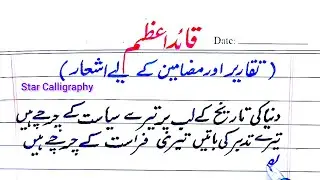 قائداعظم
Date:
(تقاریر اور مضامین کے لیے اشعار)
Star Calligraphy
دنیا کی تاریخ کے لب پر تیرے سیاست کے چرچے ہیں
تیرے تدبر کی باتیں تیری فراست کے چرچے ہیں